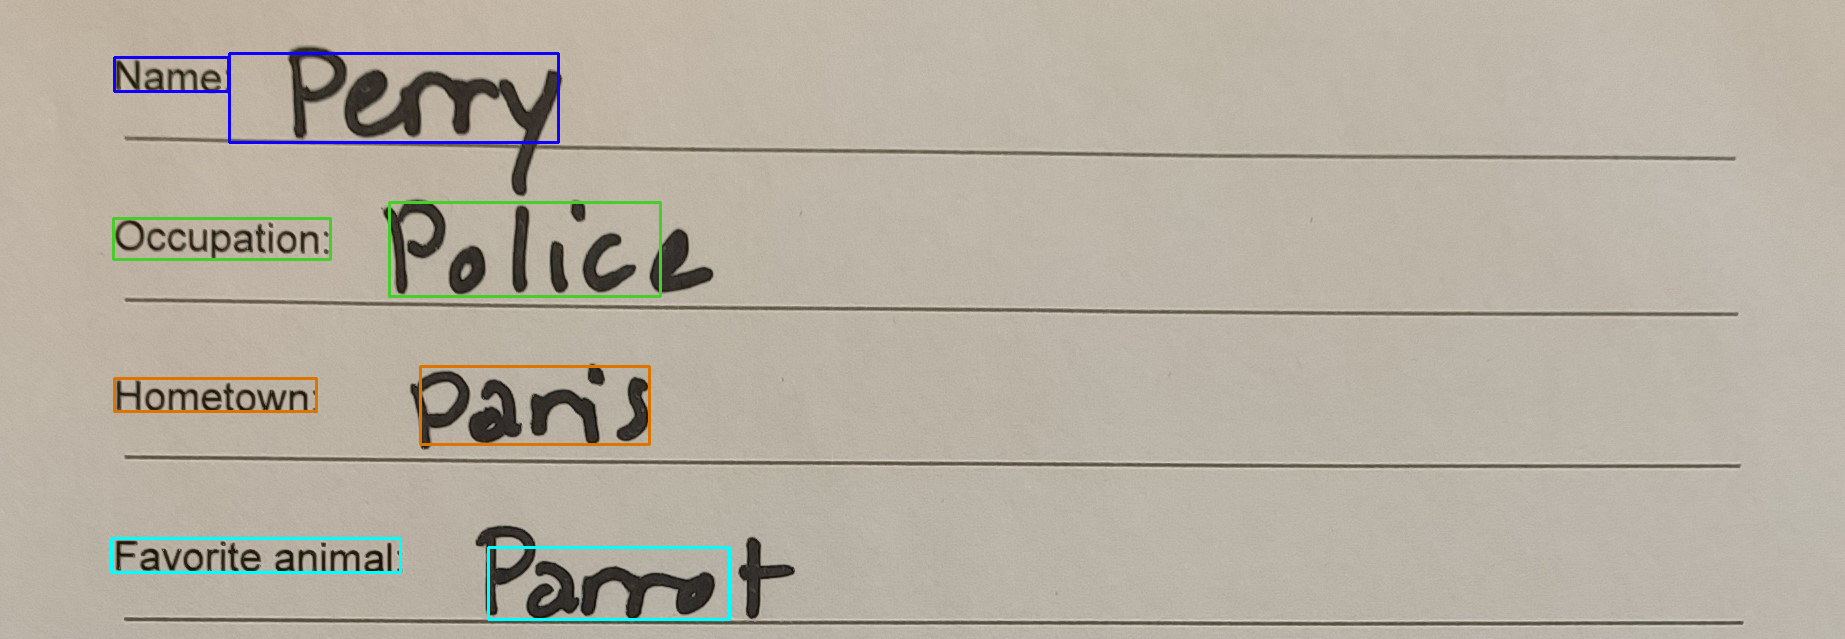 Name: Perry
Occupation: Police
Hometown: Paris
Favorite animal: Parrot